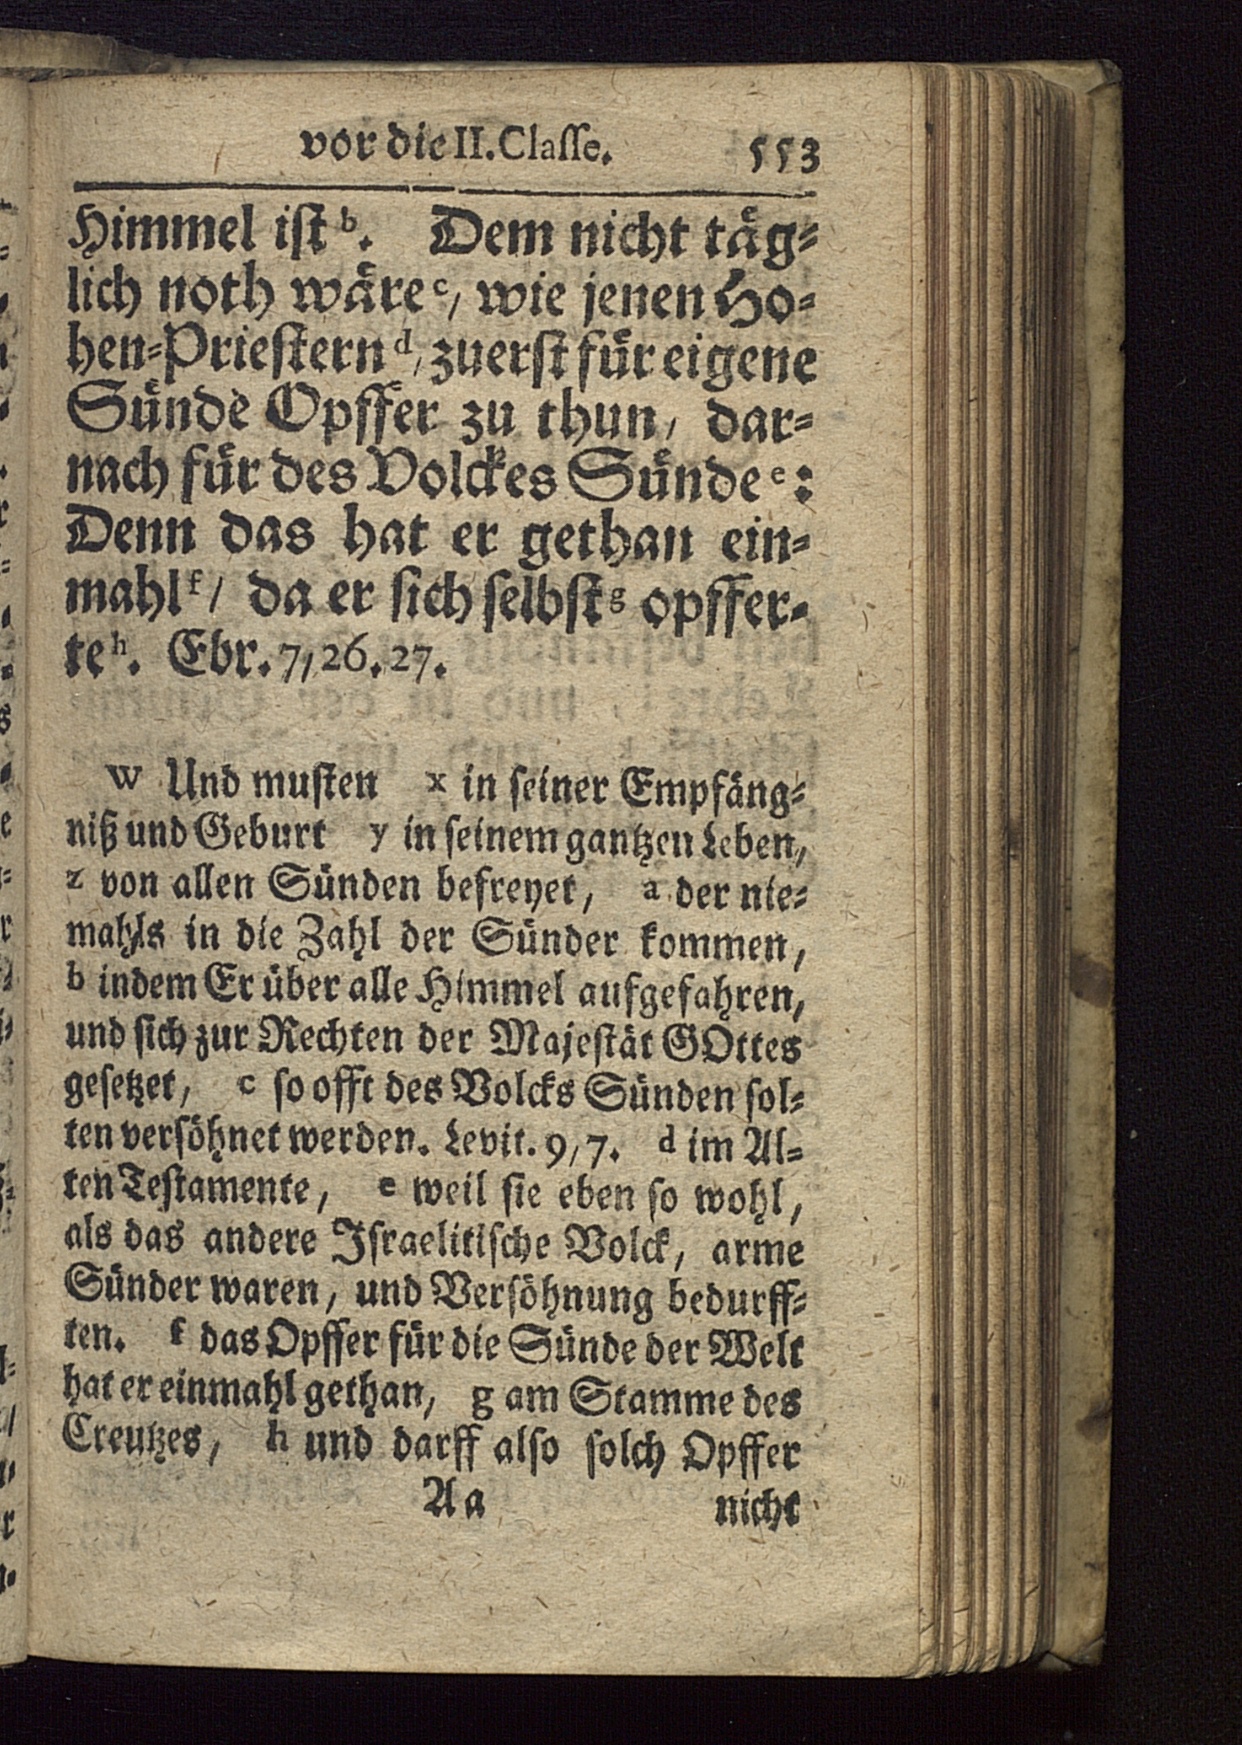 vor die II. Classe. 553
Himmel ist b. Dem nicht täg-
lich noth wäre c, wie jenen Ho-
hen-Priestern d, zuerst für eigene
Sünde Opffer zu thun, dar-
nach für des Volckes Sünde e:
Denn das hat er gethan ein-
mahl f / da er sich selbst g opffer-
te h. Ebr. 7, 26. 27.
w Und musten x in seiner Empfäng-
niß und Geburt y in seinem gantzen Leben,
z von allen Sünden befreyet, a der nie-
mahls in die Zahl der Sünder kommen,
b indem Er über alle Himmel aufgefahren,
und sich zur Rechten der Majestät GOttes
gesetzet, c so offt des Volcks Sünden sol-
ten versöhnet werden. Levit. 9, 7. d im Al-
ten Testamente, e weil sie eben so wohl,
als das andere Israelitische Volck, arme
Sünder waren, und Versöhnung bedurff-
ten. f das Opffer für die Sünde der Welt
hat er einmahl gethan, g am Stamme des
Creutzes, h und darff also solch Opffer
Aa nicht